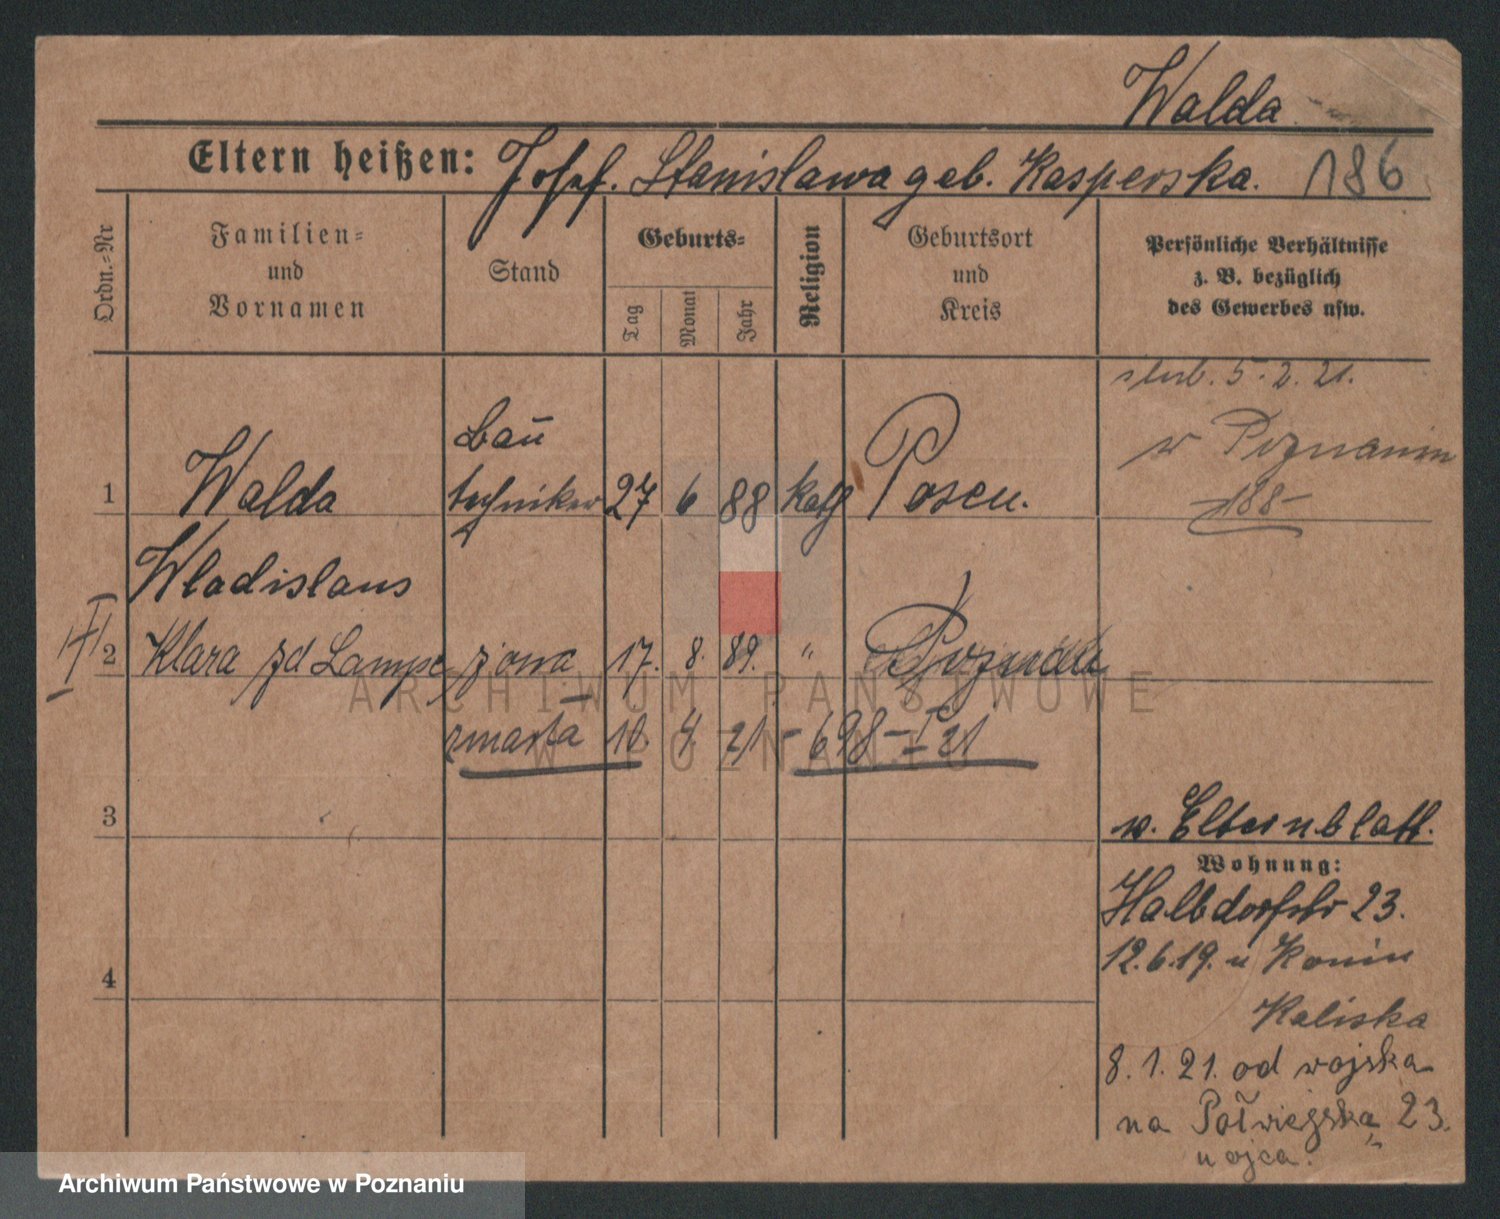 Walda
Eltern heißen: Josef. Stanislawa geb. Kasperska. 186
Ordn.=Nr
Familien=
und
Vornamen
Stand
Geburts=
Tag
Monat
Jahr
Religion
Geburtsort
und
Kreis
Persönliche Verhältnisse
z. B. bezüglich
des Gewerbes usw.
5. 2. 21.
w Poznaniu
188
Bau
1 Walda techniker 27 6 88 kath Posen.
Wladislaus
2 Klara zd Lampe żona 17. 8. 89. "
zmarła 10. 4 21 - 698 - 21
3
4
w. Elternblatt.
Wohnung:
Halbdorfstr 23.
12.6.19. n Konin
Kaliska
8. 1. 21. od wojska
na Półwiejska 23.
u ojca.
ARCHIWUM PAŃSTWOWE
W POZNANIU
Archiwum Państwowe w Poznaniu